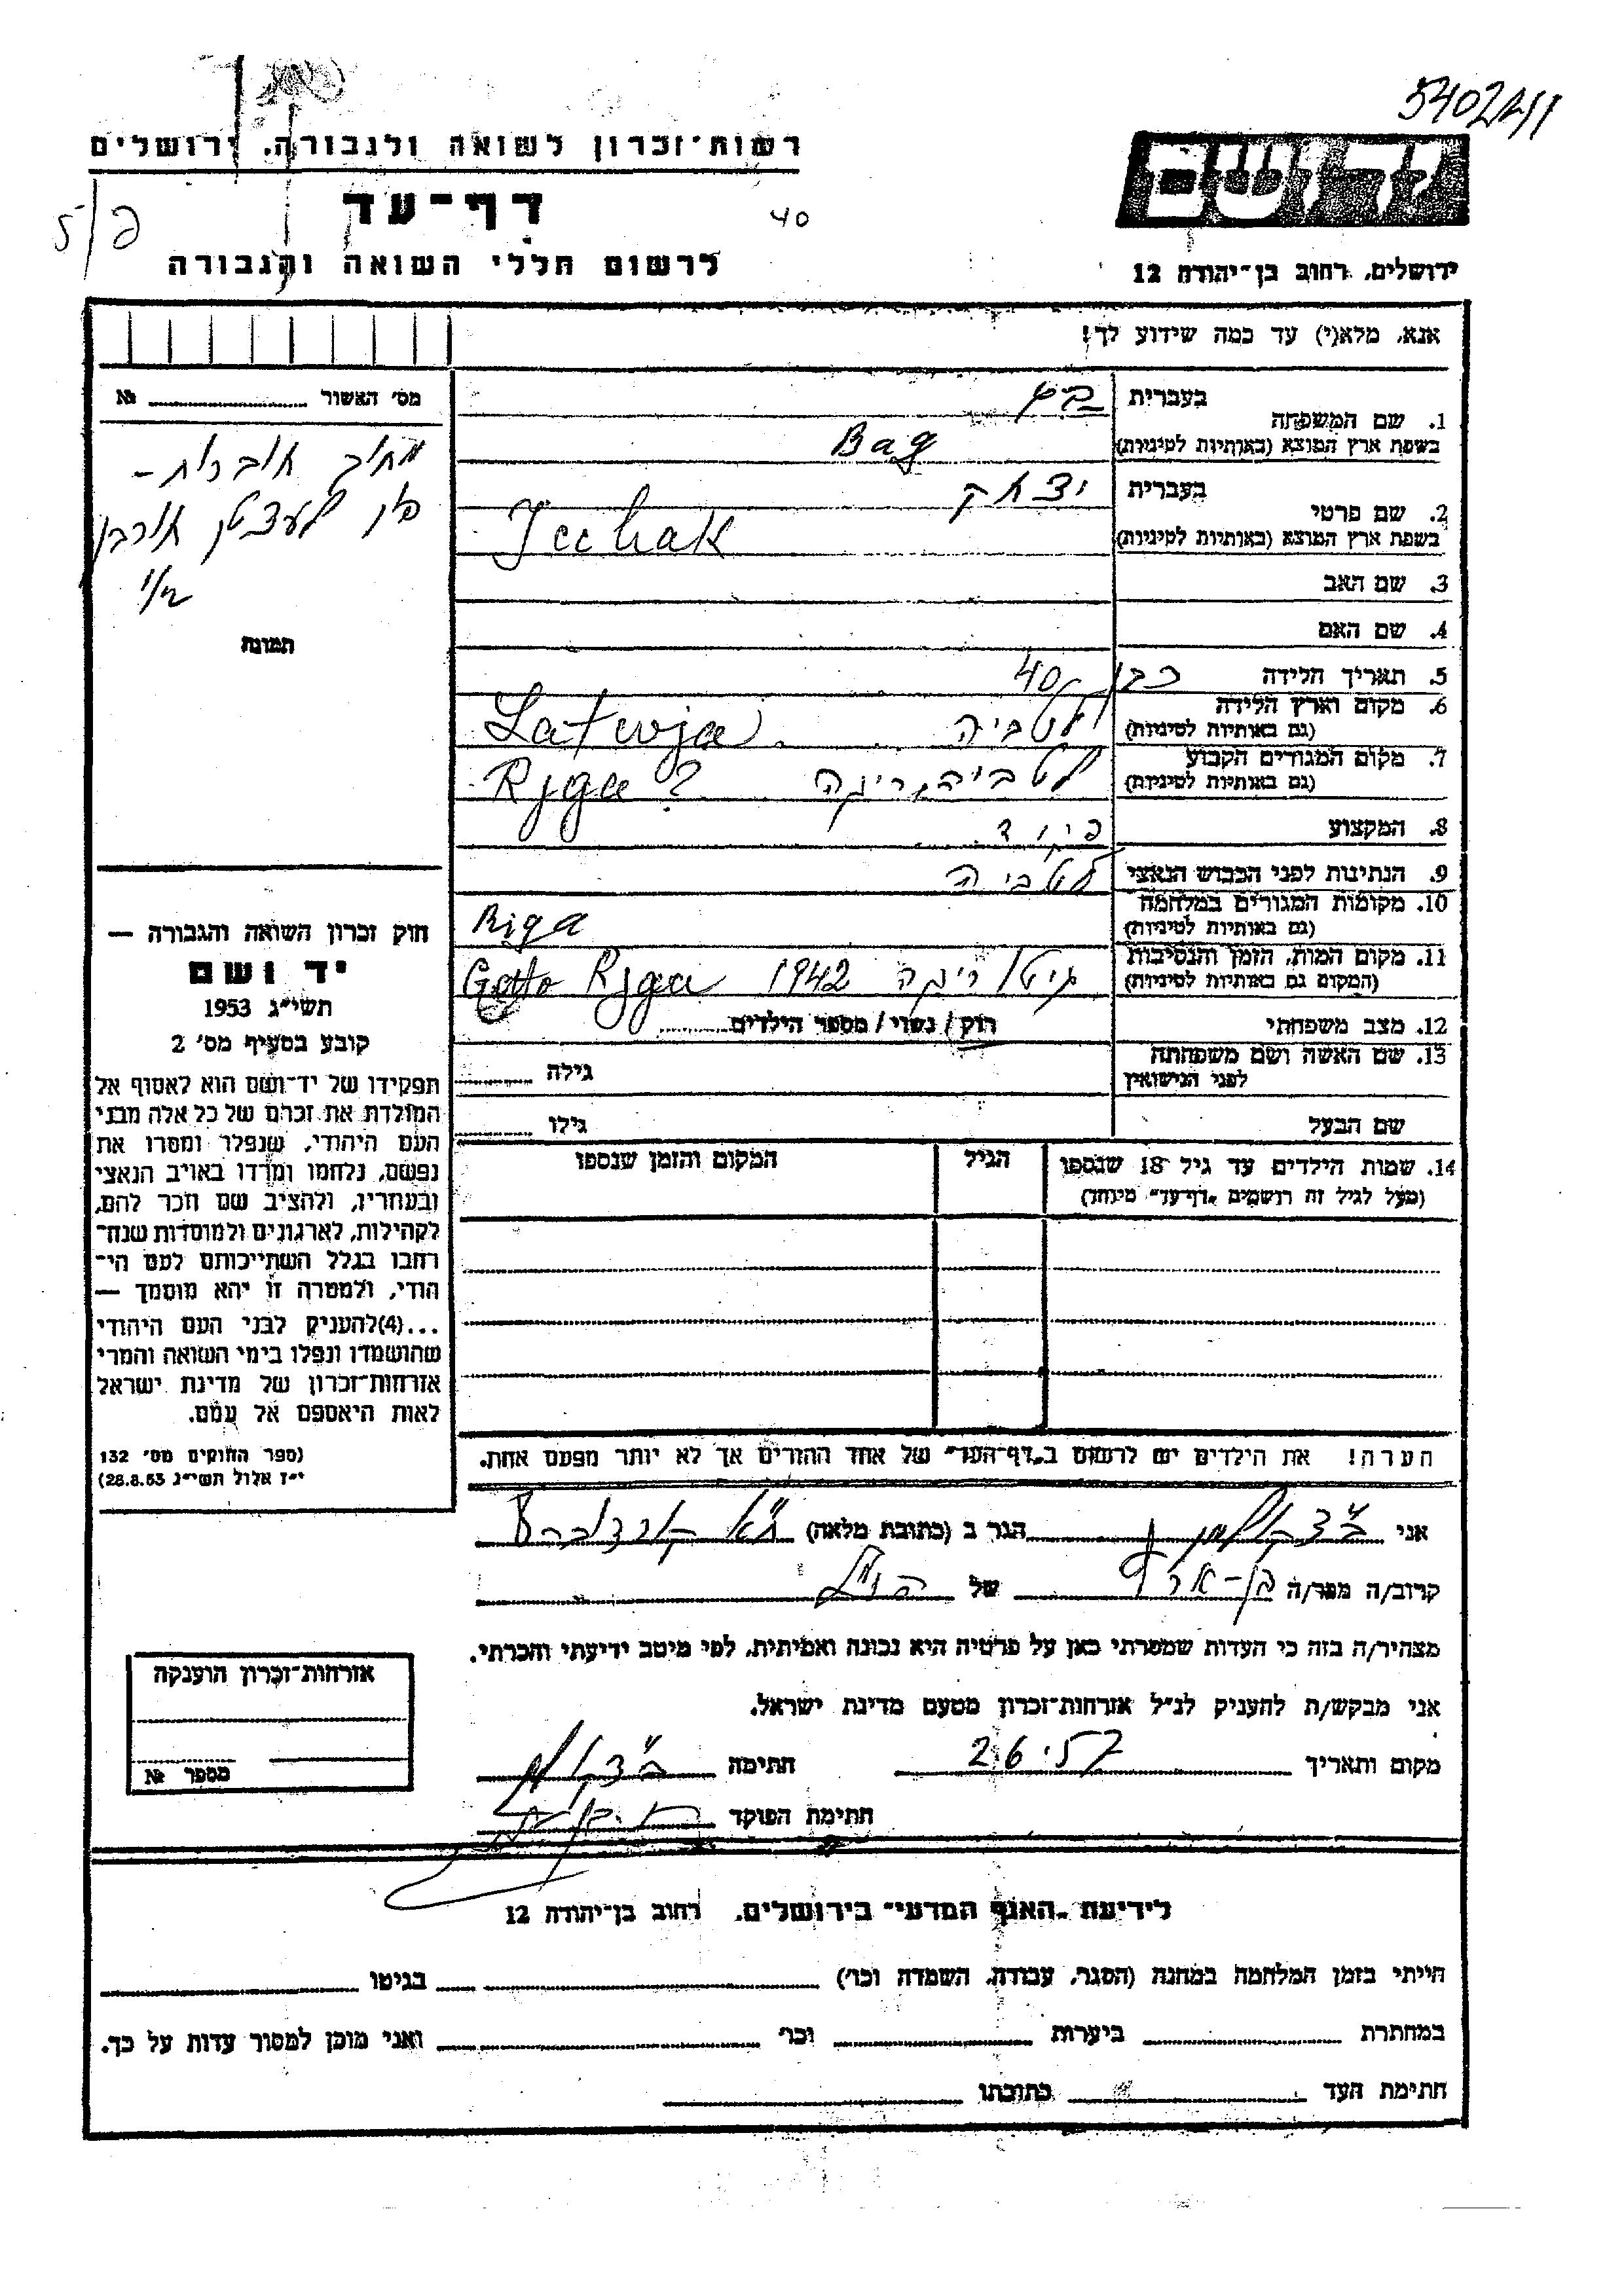 רשות־זכרון לשואה ולגבורה, ירושלים
דף־עד
40
לרשום חללי השואה והגבורה
ירושלים, רחוב בן־יהודה 12
אנא, מלא(י) עד כמה שידוע לך!
מס׳ האשור № 
1. שם המשפחה
בעברית
בשפת ארץ המוצא (באותיות לטיניות) Bag
2. שם פרטי
בעברית יצחק
בשפת ארץ המוצא (באותיות לטיניות) Icchak
3. שם האב
4. שם האם
תמונה
5. תאריך הלידה כבן 40
6. מקום וארץ הלידה לטביה Latwja
(גם באותיות לטיניות)
7. מקום המגורים הקבוע לטביה, ריגה Rjga?
(גם באותיות לטיניות)
8. המקצוע פקיד
9. הנתינות לפני הכבוש הנאצי לטביה
10. מקומות המגורים במלחמה Riga
(גם באותיות לטיניות)
11. מקום המות, הזמן והנסיבות גיטו ריגה 1942 Getto Rjga
(המקום גם באותיות לטיניות)
12. מצב משפחתי רוק / נשוי / מספר הילדים
13. שם האשה ושם משפחתה גילה
לפני הנישואין
שם הבעל גילו
14. שמות הילדים עד גיל 18 שנספו הגיל המקום והזמן שנספו
(מעל לגיל זה רושמים „דף־עד” מיוחד)
חוק זכרון השואה והגבורה —
יד ושם
תשי״ג 1953
קובע בסעיף מס׳ 2
תפקידו של יד־ושם הוא לאסוף אל
המולדת את זכרם של כל אלה מבני
העם היהודי, שנפלו ומסרו את
נפשם, נלחמו ומרדו באויב הנאצי
ובעוזריו, ולהציב שם וזכר להם,
לקהילות, לארגונים ולמוסדות שנח־
רבו בגלל השתייכותם לעם הי־
הודי, ולמטרה זו יהא מוסמך —
...(4)להעניק לבני העם היהודי
שהושמדו ונפלו בימי השואה והמרי
אזרחות־זכרון של מדינת ישראל
לאות היאספם אל עמם.
(ספר החוקים מס׳ 132
י״ז אלול תשי״ג 28.8.53)
הערה! את הילדים יש לרשום ב„דף־העד” של אחד ההורים אך לא יותר מפעם אחת.
אני הגר ב (כתובת מלאה)
קרוב/ה מכר/ה של
מצהיר/ה בזה כי העדות שמסרתי כאן על פרטיה היא נכונה ואמיתית, לפי מיטב ידיעתי והכרתי.
אני מבקש/ת להעניק לנ״ל אזרחות־זכרון מטעם מדינת ישראל.
מקום ותאריך 2.6.57 חתימה
חתימת הפוקד
אזרחות־זכרון הוענקה
מספר №
לידיעת „האגף המדעי” בירושלים, רחוב בן־יהודה 12
הייתי בזמן המלחמה במחנה (הסגר, עבודה, השמדה וכו׳) בגיטו
במחתרת ביערות וכו׳ ואני מוכן למסור עדות על כך.
חתימת העד כתובתו